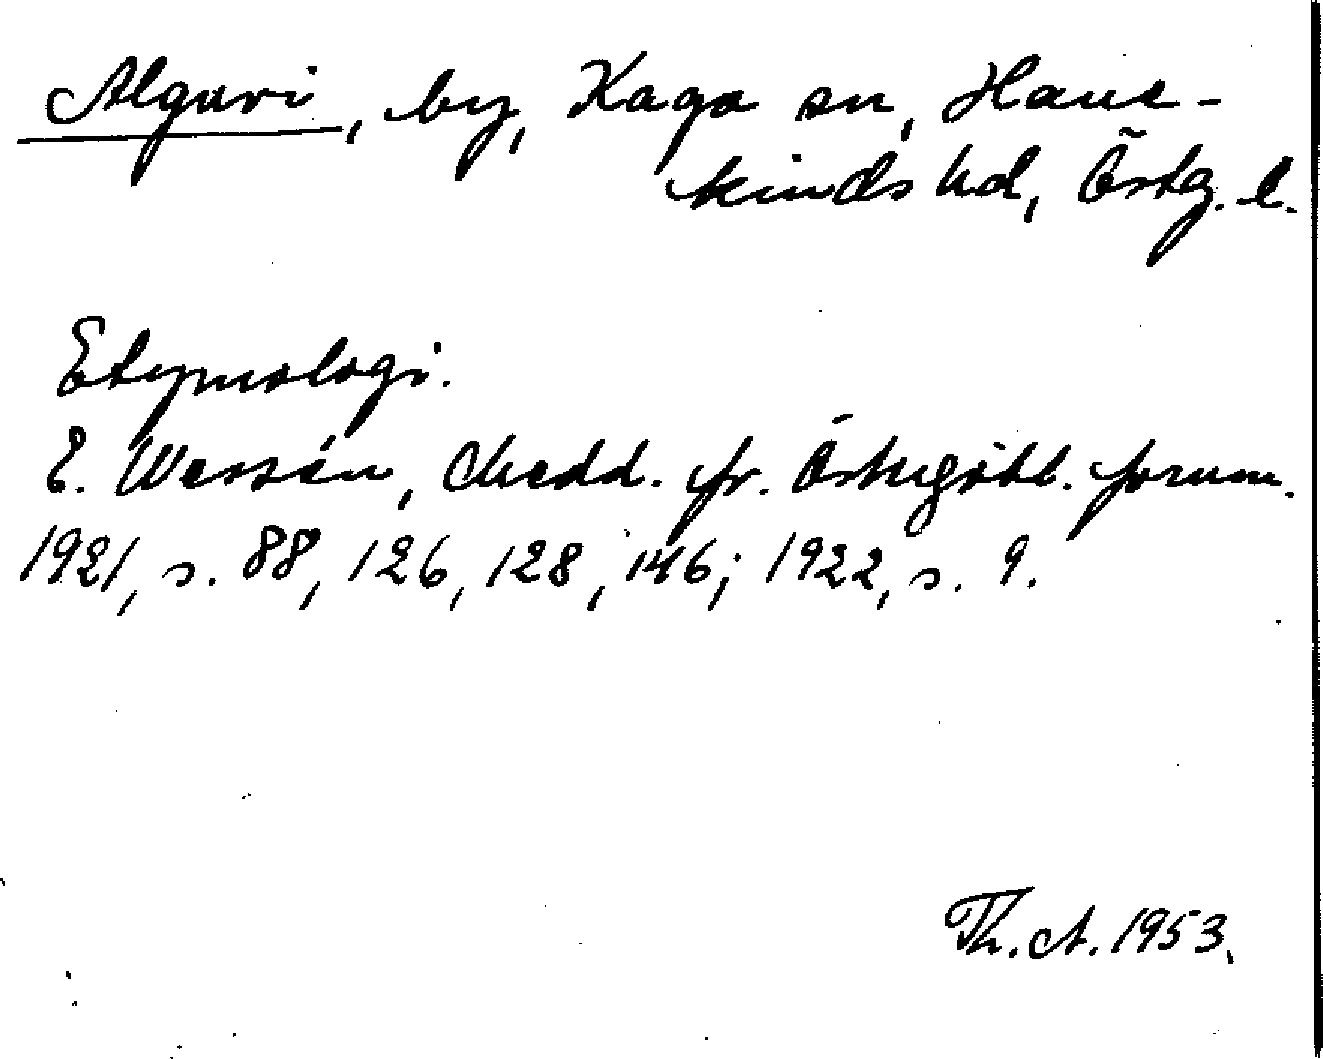 Alguvi, by, Kaga sn, Hane-
kinds hd, Östg. l.
Etymologi.
E. Wessén, Medd. fr. Östergötl. fornm.
1921, s. 88, 126, 128, 146; 1922, s. 9.
Th. A. 1953.